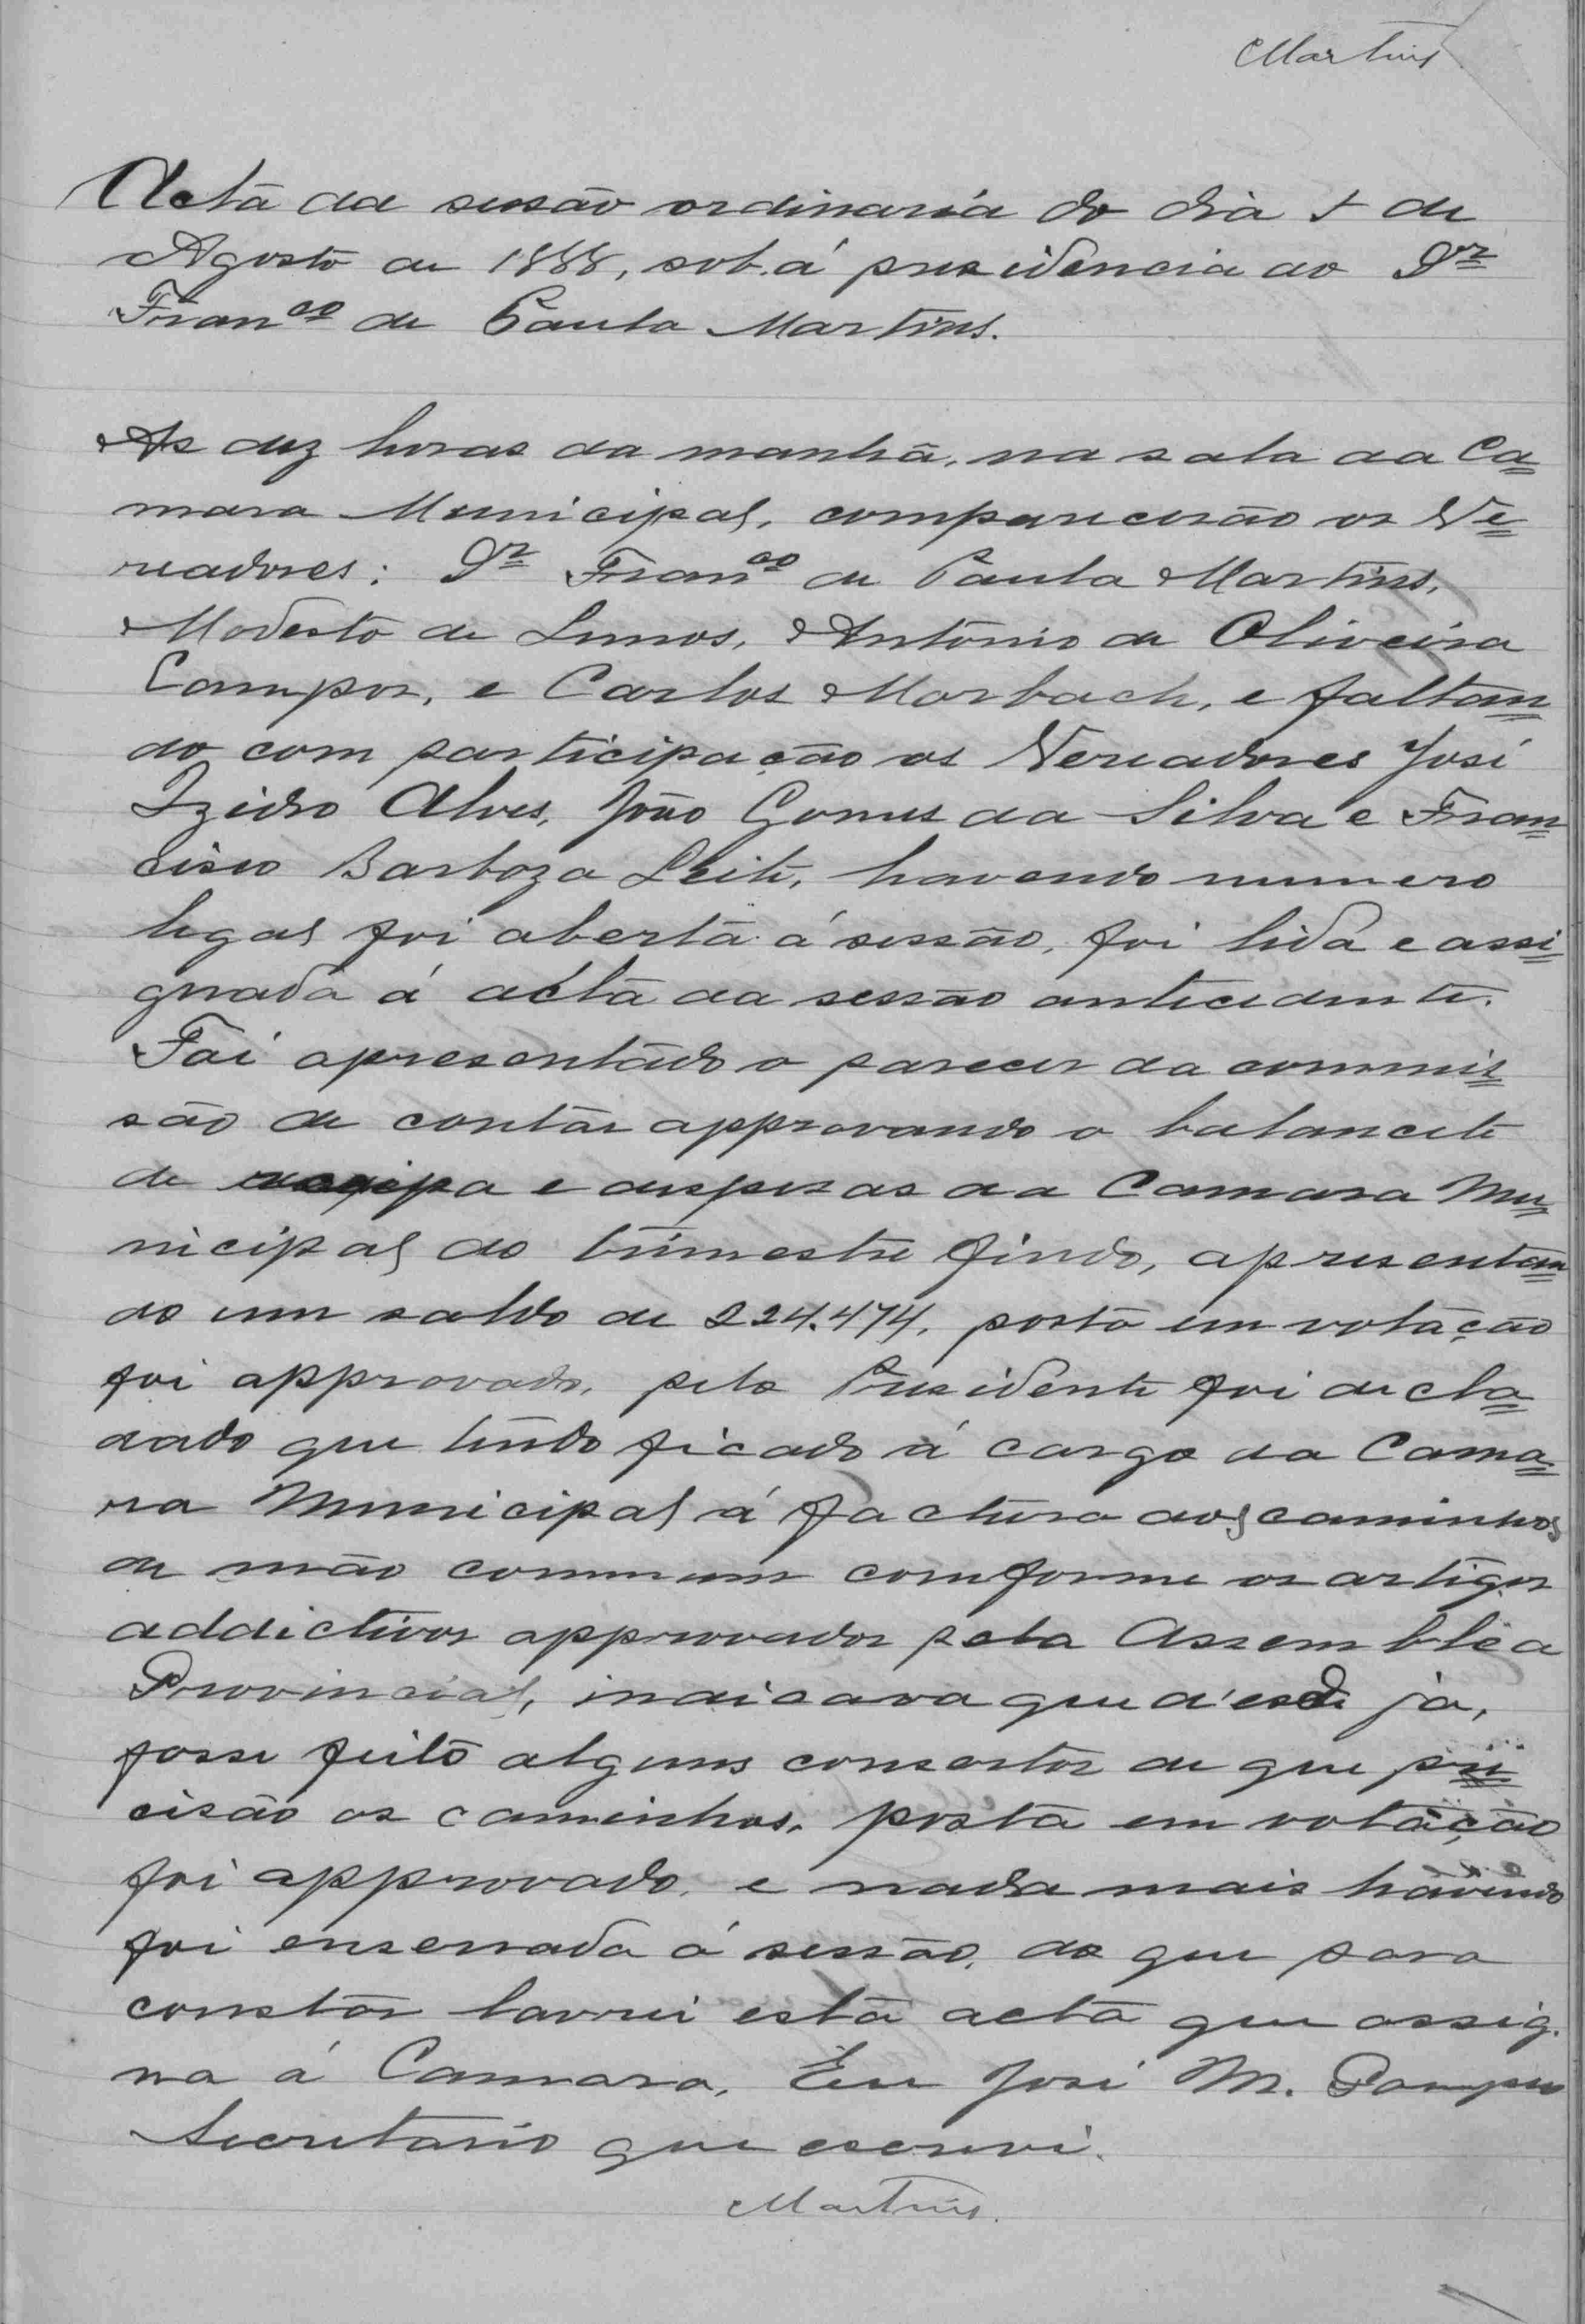 Martins
Acta da sessão ordinaria do dia de
Agosto de 1888, sob. á presidencia do Dr
Franco de Paula Martins.
As dez horas da manhã, na sala da Ca=
mara Municipal, comparecerão os Ve=
readores: Dr Franco de Paula Martins,
Modesto de Lemos, Antonio de Oliveira
Campos, e Carlos Morbach, e faltan=
do com participação os Vereadores José
Izidro Alves, João Gomes da Silva e Fran=
cisco Barboza Leite, havendo numero
legal foi aberta á sessão, foi lida e assi=
gnada á acta da sessão antecedente.
Foi apresentado o parecer da commis=
são de contas approvando o balancete
de e despezas da Camara Mu=
nicipal do trimestre findo, apresentan=
do um saldo de 224.474, posto em votação
foi approvado, pelo Presidente foi decla=
rado que tendo ficado á cargo da Cama=
ra Municipal á factura dos caminhos
de mão commum comforme os artigos
addictivos approvados pela Assemblêa
Provincial, indicava que d'esde já,
fosse feito alguns consertos de que pre=
cisão os caminhos, posta em votação
foi approvado, e nada mais havendo
foi enserrada á sessão, do que para
constar lavrei esta acta que assig.
na á Camara, Eu José M. Pompeo
Secretario que escrevi.
Martins.